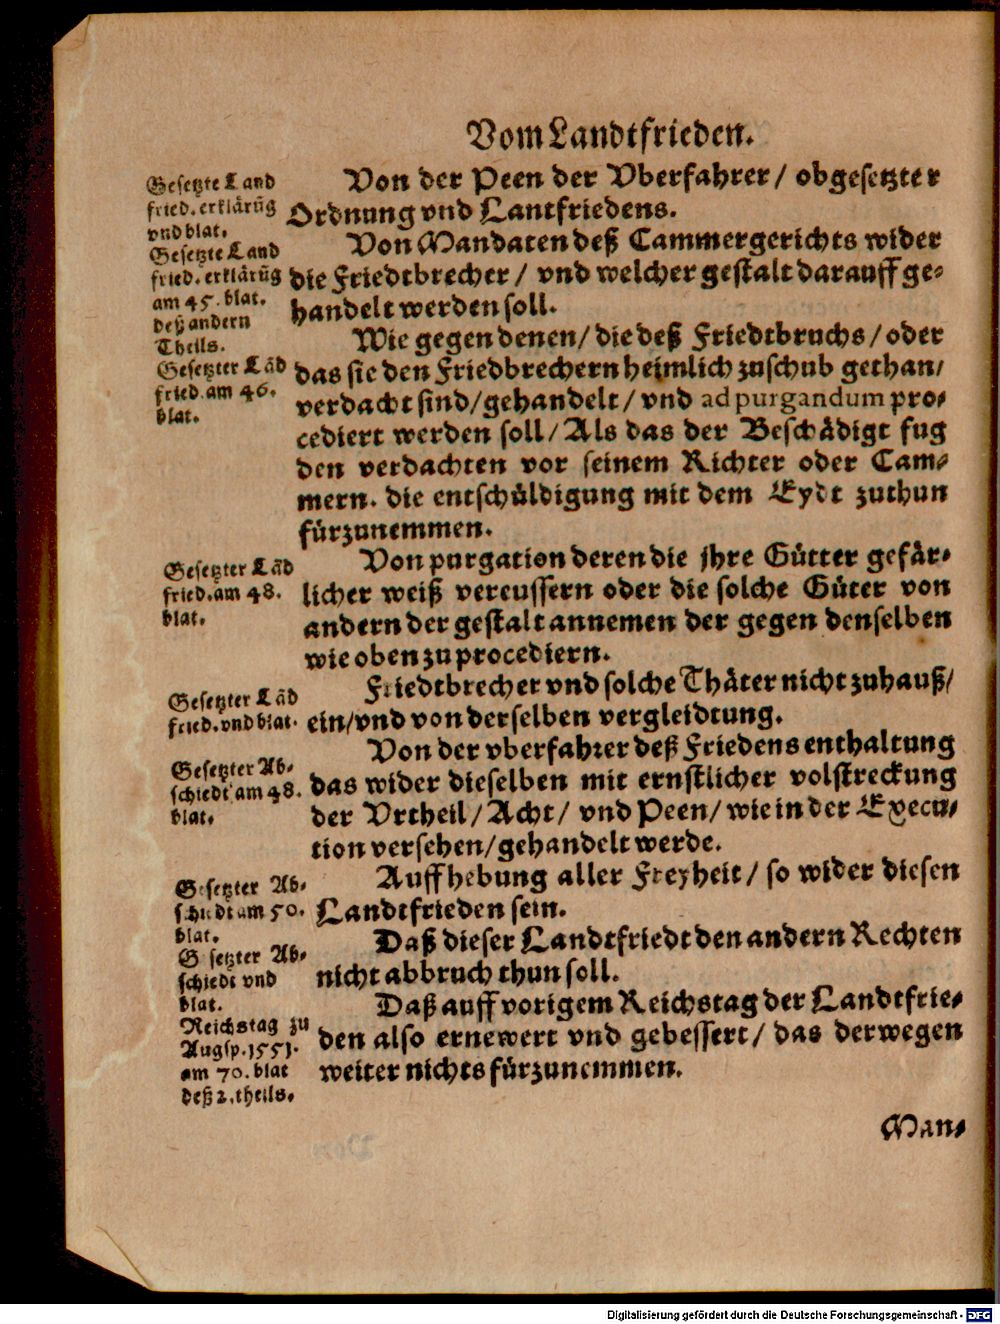 Vom Landtfrieden.
Gesetzte Land
fried. erklärũg
vnd blat.
Von der Peen der Vberfahrer / obgesetzter
Ordnung vnd Lantfriedens.
Gesetzte Land
fried. erklärũg
am 45. blat.
deß andern
Theils.
Von Mandaten deß Cammergerichts wider
die Friedtbrecher / vnd welcher gestalt darauff ge⸗
handelt werden soll.
Gesetzter Lãd
fried. am 46.
blat.
Wie gegen denen / die deß Friedtbruchs / oder
das sie den Friedbrechern heimlich zuschub gethan /
verdacht sind / gehandelt / vnd ad purgandum pro⸗
cediert werden soll / Als das der Beschädigt fug
den verdachten vor seinem Richter oder Cam⸗
mern. die entschüldigung mit dem Eydt zuthun
fürzunemmen.
Gesetzter Lãd
fried. am 48.
blat.
Von purgation deren die jhre Gütter gefär⸗
licher weiß vereussern oder die solche Güter von
andern der gestalt annemen der gegen denselben
wie oben zu procediern.
Gesetzter Lãd
fried. vnd blat.
Friedtbrecher vnd solche Thäter nicht zuhauß /
ein / vnd von derselben vergleidtung.
Gesetzter Ab⸗
schiedt am 48.
blat.
Von der vberfahrer deß Friedens enthaltung
das wider dieselben mit ernstlicher volstreckung
der Vrtheil / Acht / vnd Peen / wie in der Execu⸗
tion versehen / gehandelt werde.
Gesetzter Ab⸗
schiedt am 50.
blat.
Auffhebung aller Freyheit / so wider diesen
Landtfrieden sein.
Gesetzter Ab⸗
schiedt vnd
blat.
Daß dieser Landtfriedt den andern Rechten
nicht abbruch thun soll.
Reichstag zu
Augsp. 1551.
am 70. blat
deß 2. theils.
Daß auff vorigem Reichstag der Landtfrie⸗
den also ernewert vnd gebessert / das derwegen
weiter nichts fürzunemmen.
Man⸗
Digitalisierung gefördert durch die Deutsche Forschungsgemeinschaft - DFG